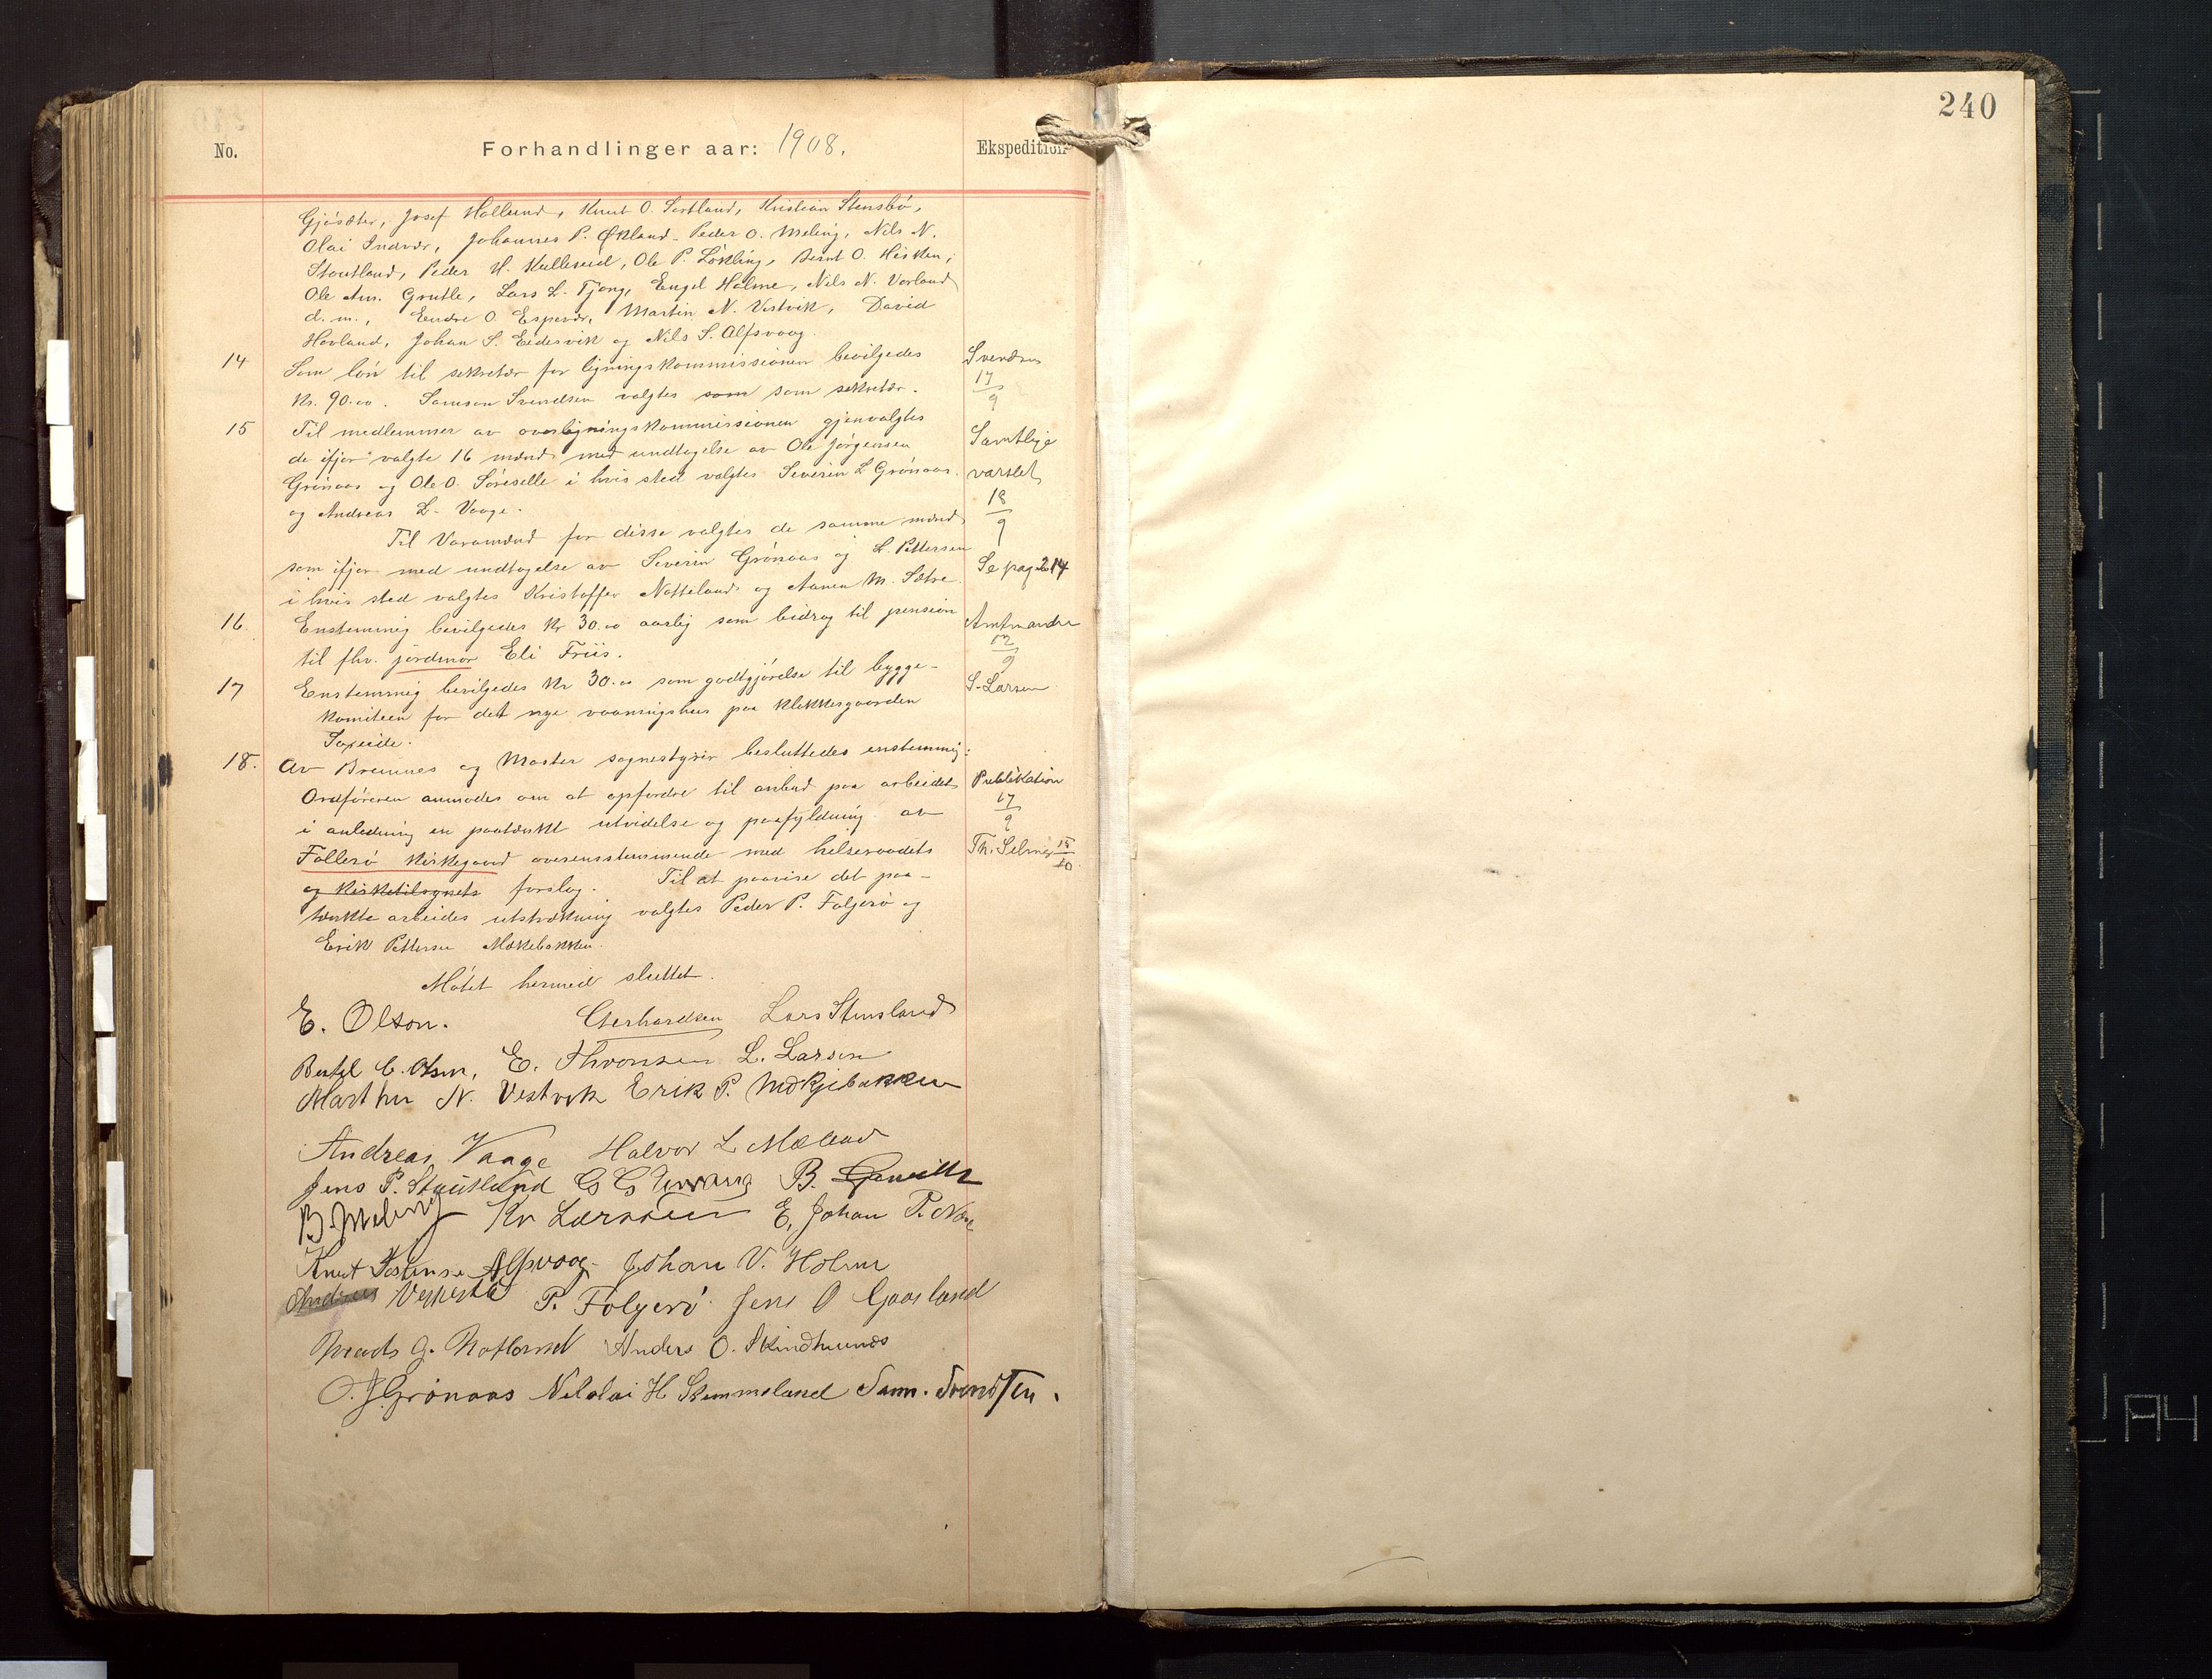 240
No.
Forhandlinger aar: 1908.
Ekspedition
Gjøsæter, Josef Hollund, Knut O. Sortland, Kristian Stensbø,
Olai Indvær, Johannes P. Økland, Peder O. Meling, Nils N.
Stoutland, Peder H. Kulleseid, Ole P. Løkling, Bernt O. Hisken,
Ole Am. Grutle, Lars L. Tjong, Engel Holme, Nils N. Vorland
d. m., Endre O. Espevær, Martin N. Vestvik, David
Hovland, Johan S. Eidesvik og Nils S. Alfsvaag.
14 Som løn til sekretær for ligningskommissionen bevilgedes Svendsen
Kr. 90.00. Samson Svendsen valgtes som som sekretær. 17/9
15 Til medlemmer av overligningskommissionen gjenvalgtes
de ifjor valgte 16 mænd med undtagelse av Ole Jørgensen Samtlige
Grønaas og Ole O. Søreselle i hvis sted valgtes Severin L Grønaas varslet
og Andreas L. Vaage. 18/9
Til Varamænd for disse valgtes de samme mænd
som ifjor med undtagelse av Severin Grønaas og L. Pettersen Se pag 214
i hvis sted valgtes Kristoffer Notteland og Aanen M. Sætre.
16. Enstemmig bevilgedes Kr 30.00 aarlig som bidrag til pension Amtmanden
til fhv. jordmor Eli Friis. 12/9
17 Enstemmig bevilgedes Kr 30.00 som godtgjørelse til bygge- S. Larsen
komiteen for det nye vaaningshus paa klokkergaarden
Søreide.
18. Av Bremnes og Moster sognestyrer besluttedes enstemmig:
Ordføreren anmodes om at opfordre til anbud paa arbeidet Publikation
i anledning en paatænkt utvidelse og paafyldning av 17/9
Follerø Kirkegaard overensstemmende med helseraadets Th. Selmer 15/10.
og kirketilsynets forslag. Til at paavise det paa-
tænkte arbeides utstrækning valgtes Peder P. Folgerø og
Erik Pettersen Mækebakken.
Møtet hermed sluttet.
E. Olson. Gerhardsen Lars Stensland
Bertel C. Olsen, E. Thronsen L. Larsen
Marthin N. Vestvik Erik P. Mökjebakken
Andreas Vaage Halvor L Mæland
Jens P. Stautland G G Urvang B.
B. Meling Kr Larssen E. Johan P. Næs
Knut Alfsvaag Johan V. Holm
Andreas P. Folgerø Jens O Gaasland
Mads G. Notland Anders O.
O. J. Grønaas Nikolai H Stemmeland Sam. Svendsen.